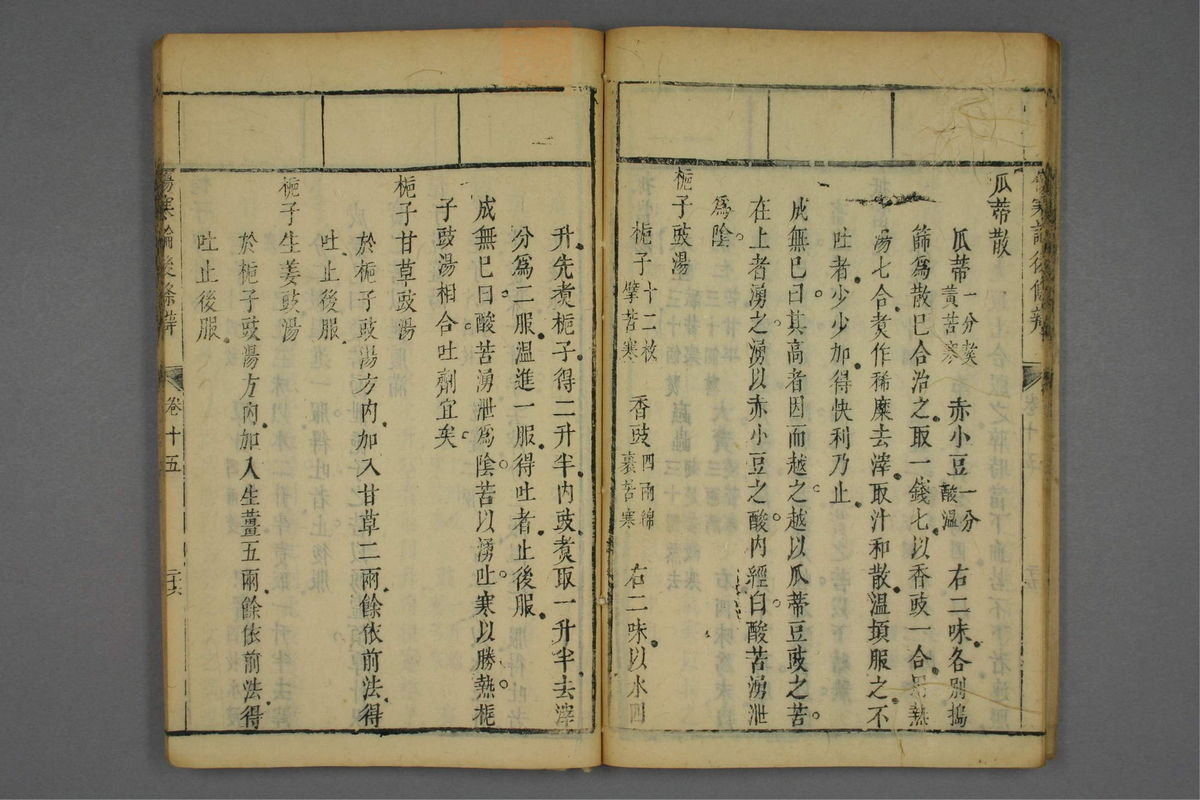 傷寒論後條辯
瓜蒂散
瓜蒂一分熬黃苦寒 赤小豆一分酸溫 右二味各別搗
篩爲散已合治之取一錢匕以香豉一合用熱
湯七合煑作稀糜去滓取汁和散溫頓服之不
吐者少少加得快利乃止
成無巳曰其高者因而越之越以瓜蒂豆豉之苦
在上者湧之湧以赤小豆之酸內經曰酸苦湧泄
爲陰
梔子豉湯
梔子十二枚擘苦寒 香豉四兩綿裹苦寒 右二味以水四
升先煑梔子得二升半內豉煑取一升半去滓
分爲二服溫進一服得吐者止後服
成無巳曰酸苦湧泄爲陰苦以湧吐寒以勝熱梔
子豉湯相合吐劑宜矣
梔子甘草豉湯
於梔子豉湯方內加入甘草二兩餘依前法得
吐止後服
梔子生姜豉湯
於梔子豉湯方內加入生薑五兩餘依前法得
吐止後服
傷寒論後條辯 卷十五